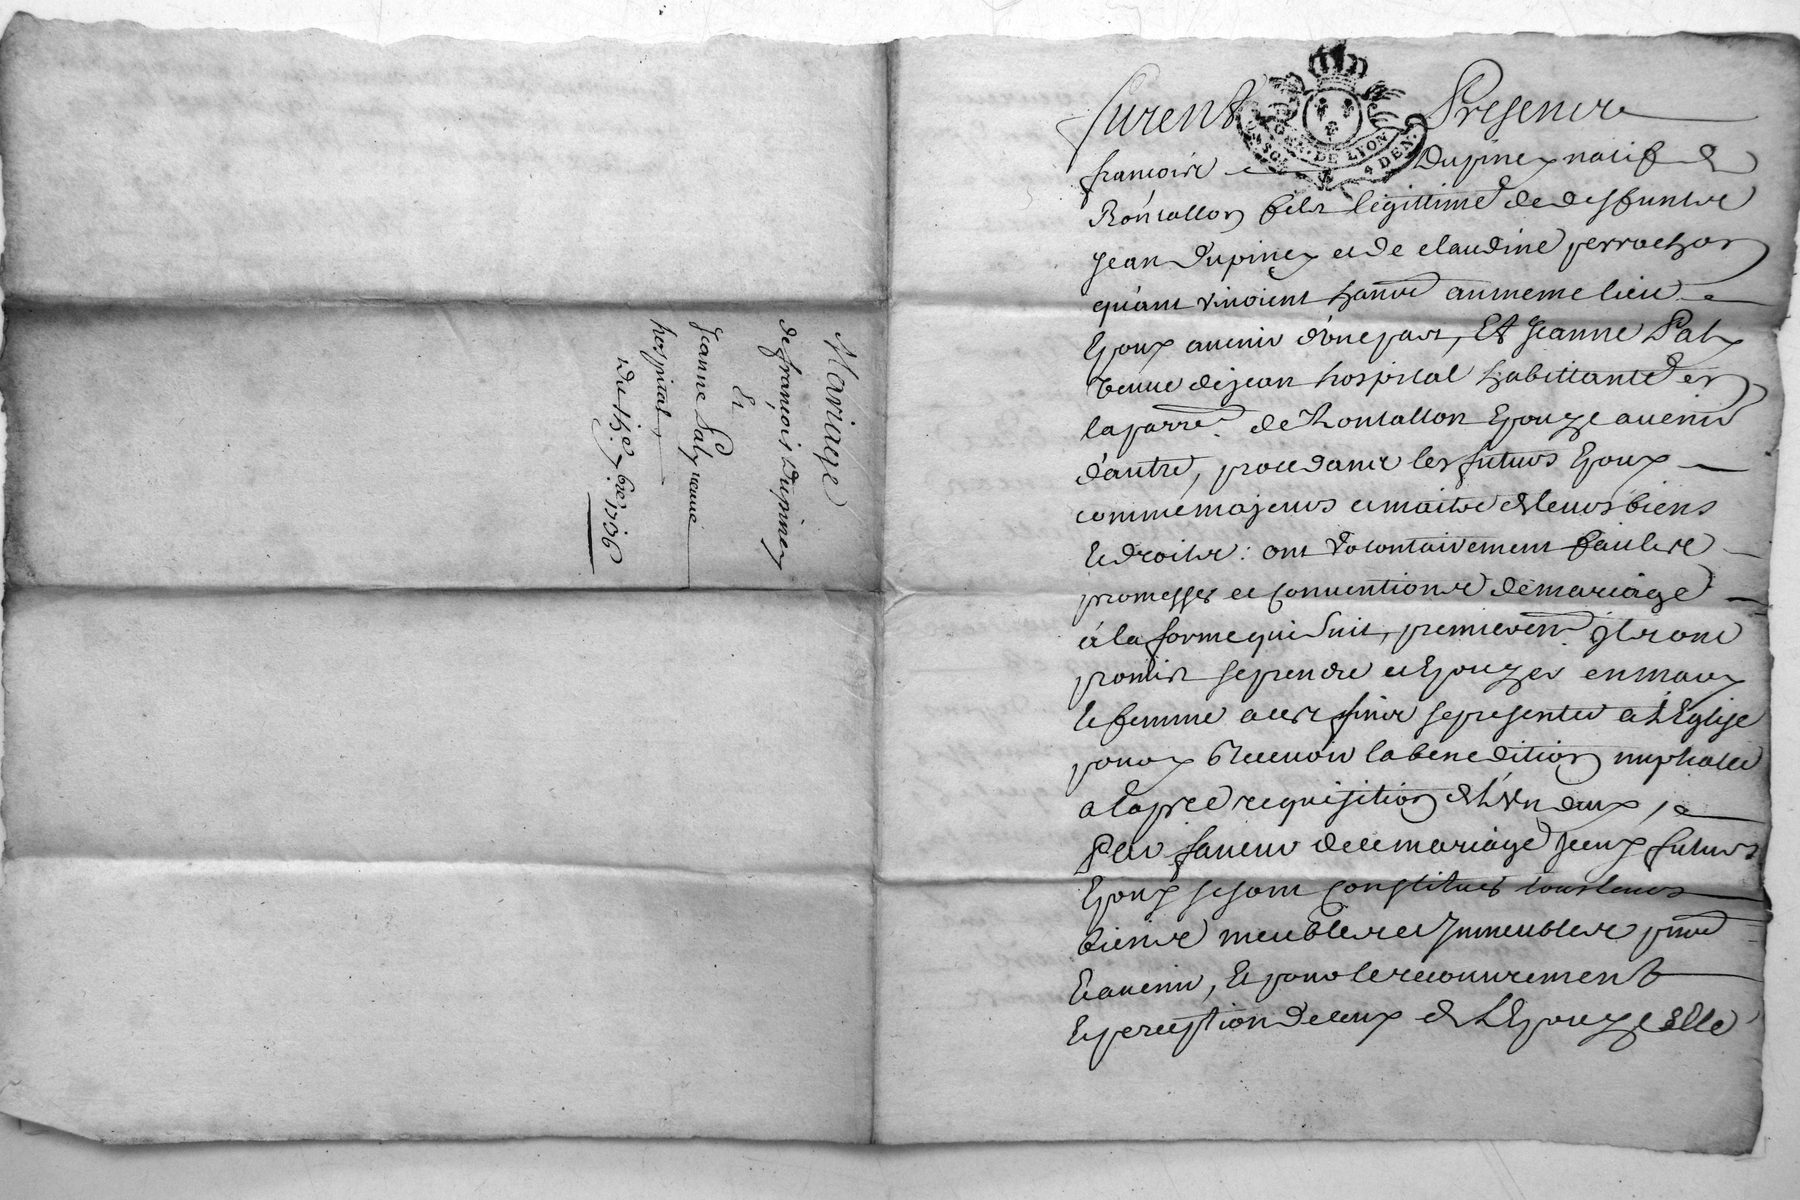 Mariage
de françois Dupiney
Et
Jeanne Paly veuve
hospital
Du 15e. 7bre. 1736
furent Presence
GEN. DE LYON
4 DEN.
francoise Dupiney natif de
Rontallon fils legittime de desfuncts
Jean dupiney et de claudine perrachon
quant vivoient hants au meme lieu
Epoux avenir d'une part, Et Jeanne Paly
veuve de jean hospital habittante en
la parre. de Rontallon Epouze avenir
d'autre, procedants les futurs Epoux
comme majeurs et maitre de leurs biens
Et droits: ont volontairement fait les
promesses et conventions de mariage
à la forme qui suit, premierent. Ils ont
promis se prendre et Epouzer en mary
Et femme a ces fins se presenter a L'Eglise
pour y Recevoir la benedition nuptialle
a la pre requisition de L'un deux,
Per faveur de ce mariage Iceux futurs
Epoux se sont constitues tous leurs
biens meubles et Immeubles pnts
Et avenir, Et pour le recouvrement
Et perception de ceux de L'Epouze Elle